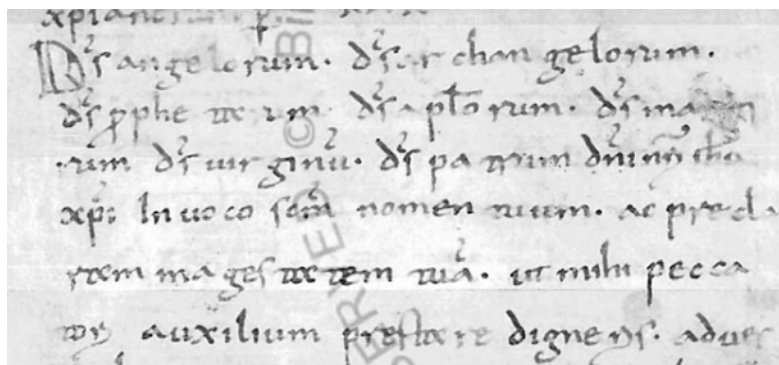 xpianorum
Ds angelorum. ds archangelorum.
ds pphetarum ds aplorum. ds martu
rum ds uirginu. ds patrum dni nri ihu
xpi. Inuoco scm nomen tuum. ac precla
ram magestatem tuã. ut mihi pecca
tori auxilium prestare digneris. aduer